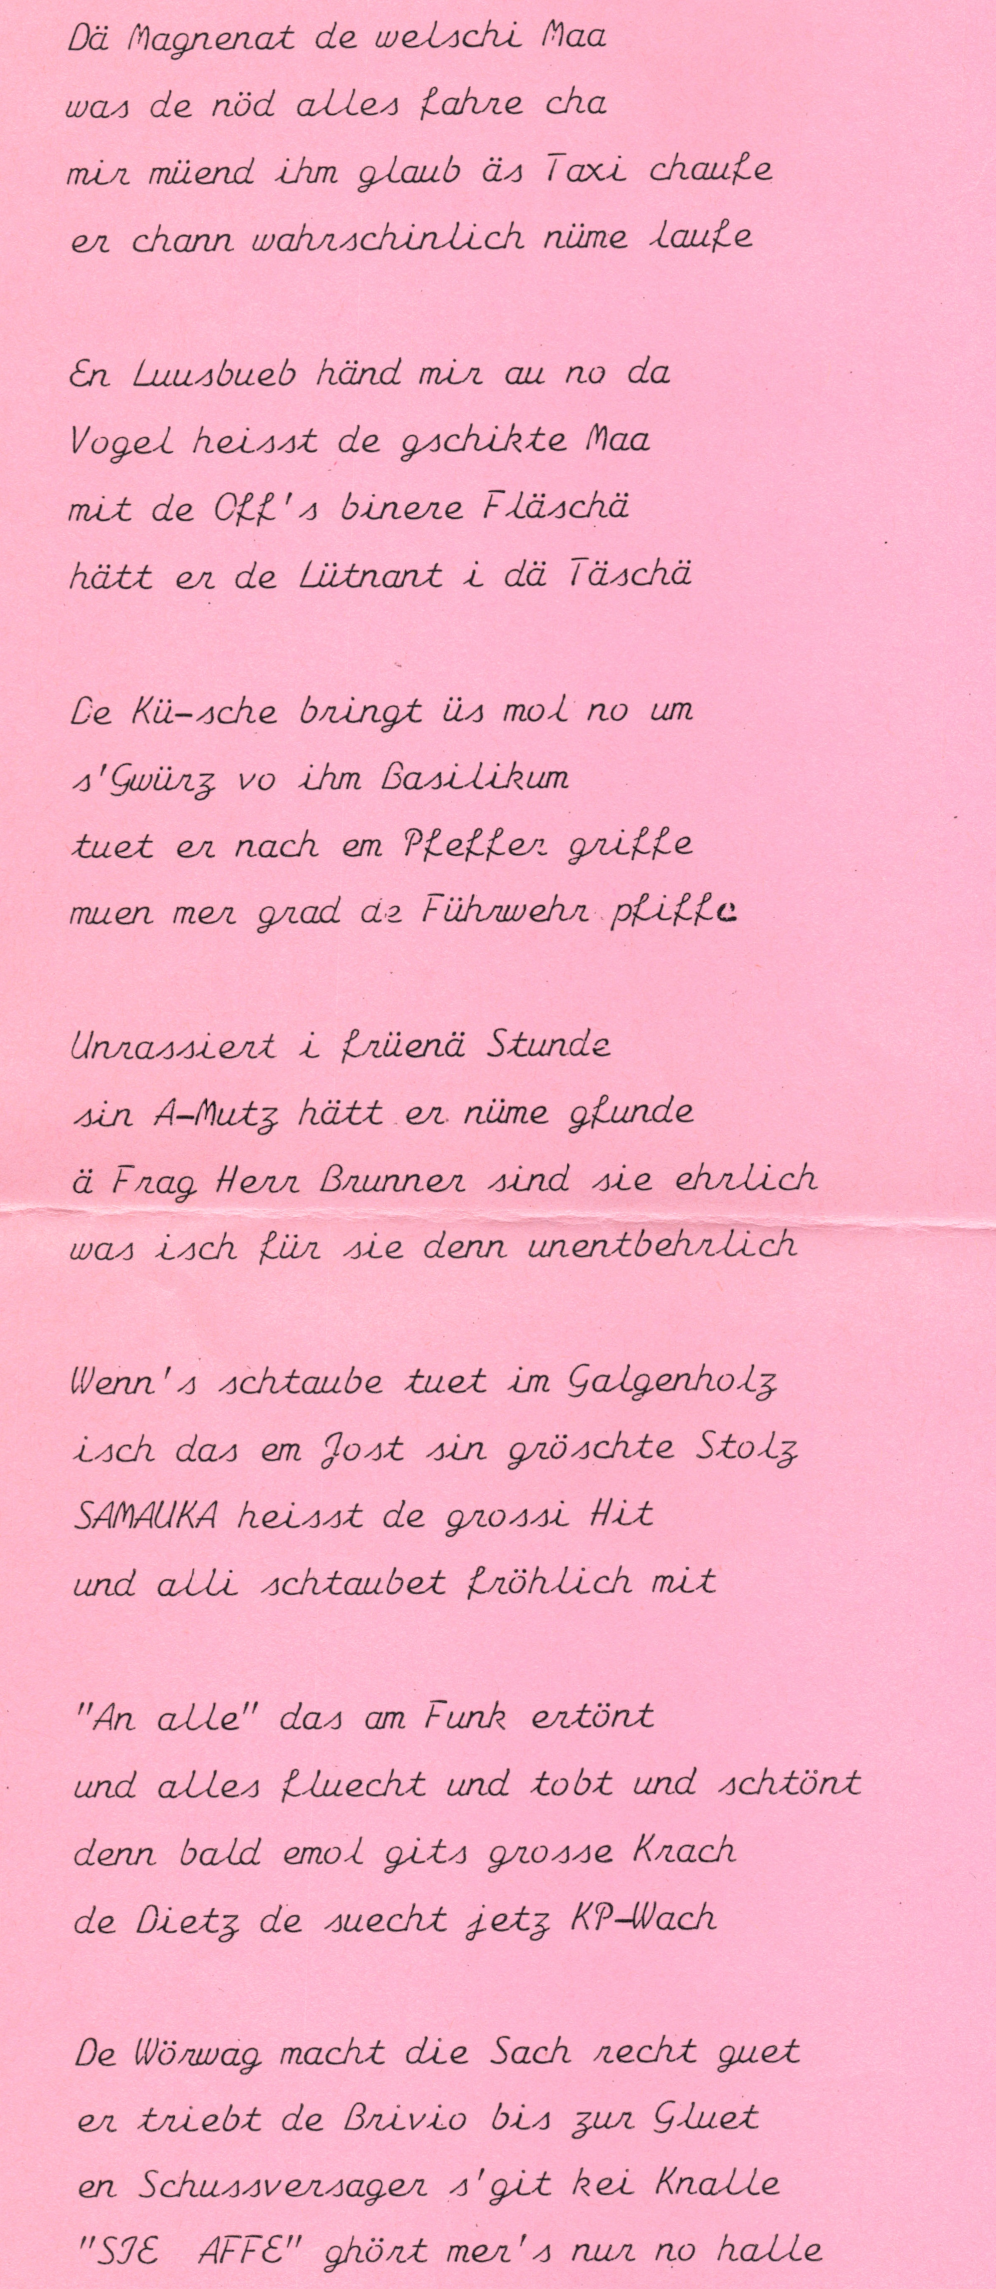 Dä Magnenat de welschi Maa
was de nöd alles fahre cha
mir müend ihm glaub äs Taxi chaufe
er chann wahrschinlich nüme laufe
En Luusbueb händ mir au no da
Vogel heisst de gschikte Maa
mit de Off's binere Fläschä
hätt er de Lütnant i dä Täschä
De Kü-sche bringt üs mol no um
s'Gwürz vo ihm Basilikum
tuet er nach em Pfeffer griffe
muen mer grad de Führwehr pfiffe
Unrassiert i früenä Stunde
sin A-Mutz hätt er nüme gfunde
ä Frag Herr Brunner sind sie ehrlich
was isch für sie denn unentbehrlich
Wenn's schtaube tuet im Galgenholz
isch das em Jost sin gröschte Stolz
SAMAUKA heisst de grossi Hit
und alli schtaubet fröhlich mit
"An alle" das am Funk ertönt
und alles fluecht und tobt und schtönt
denn bald emol gits grosse Krach
de Dietz de suecht jetz KP-Wach
De Wörwag macht die Sach recht guet
er triebt de Brivio bis zur Gluet
en Schussversager s'git kei Knalle
"SIE AFFE" ghört mer's nur no halle